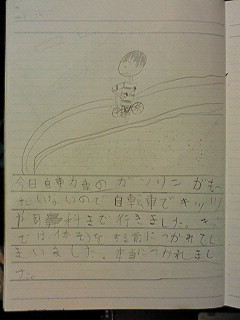 今日自動車のガソリンがもっ
たいないので自転車でキッズ
歯科まで行きました。
では体そうする前につかれてし
まいました。本当につかれまし
た。